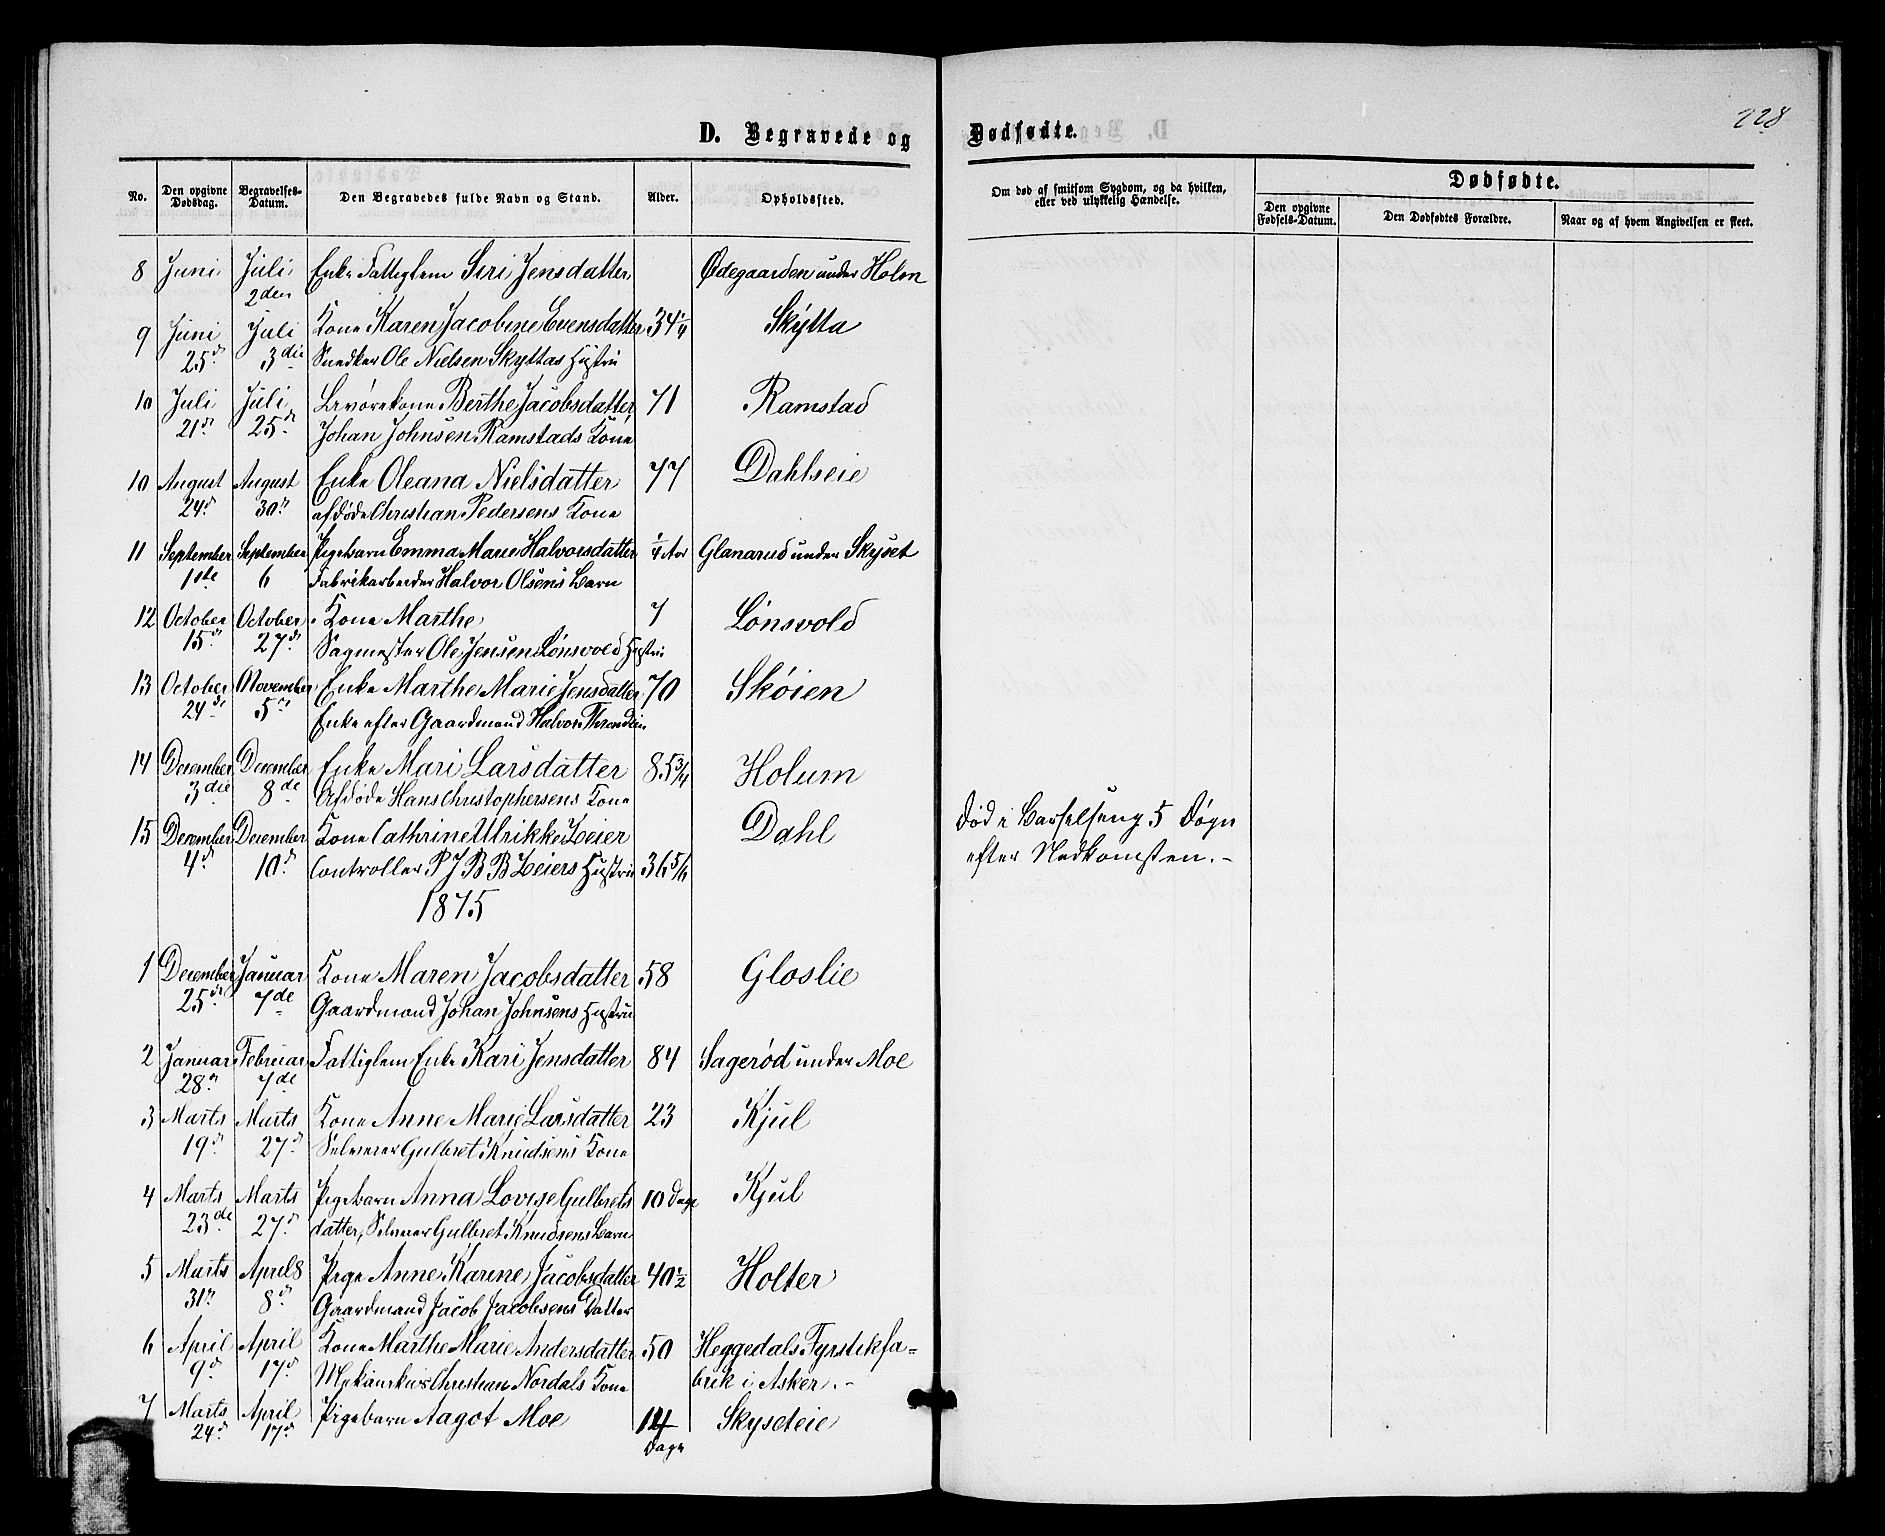 D. Begravede og Dødfødte.
228
No. Den opgivne Dødsdag. Begravelses-Datum. Den Begravedes fulde Navn og Stand. Alder. Opholdssted. Om død af smitsom Sygdom, og da hvilken, eller ved ulykkelig Hændelse. Dødfødte.
Den opgivne Fødsels-Datum. Den Dødfødtes Forældre. Naar og af hvem Angivelsen er skeet.
8 Juni Juli Enke Fattiglem Siri Jensdatter Ødegaarden under Holm
2den
9 Juni Juli Kone Karen Jacobine Evensdatter 34 1/4 Skÿtta
25d 3die Snedker Ole Nielsen Skyttas Hustru
10 Juli Juli Kone Berthe Jacobsdatter 71 Ramstad
21d 25d Johan Johnsen Ramstads Kone
10 August August Enke Oleana Nielsdatter 77 Dahlseie
24d 30n afdøde Christian Pedersens Kone
11 September September Pigebarn Emma Marie Halvorsdatter 1/4 Aar Glanarud under Skyset
1ste 6 Fabrikarbeider Halvor Olsens Barn
12 October October Kone Marthe 7 Lønsvold
15d 27d Sagmester Ole Jensen Lønsvold Hustru
13 October November Enke Marthe Marie Jensdatter 70 Skøien
24d 5n Enke efter Gaardmand Halvor
14 December December Enke Mari Larsdatter 85 3/4 Holum
3die 8de Afdøde Hans Christophersens Kone
15 December December Kone Cathrine Ulrikke Leier Dahl Død i Barselseng 5 Døgn
4d 10d Controller P J B B Leiers Hustru 36 5/6 efter Nedkomsten.-
1875
1 December Januar Kone Maren Jacobsdatter 58 Gloslie
25d 7de Gaardmand Johan Johnsens Hustru
2 Januar Februar Fattiglem Enke Kari Jensdatter 84 Sagerød under Moe
28n 7de
3 Marts Marts Kone Anne Marie Larsdatter 23 Kjul
19d 27d Selveier Gulbret Knudsens Kone
4 Marts Marts Pigebarn Anna Lovise Gulbrets 10 Dage Kjul
23de 27d datter, Selveier Gulbret Knudsens Barn
5 Marts April 8 Pige Anne Karine Jacobsdatter 40 1/2 Holter
31n 8d Gaardmand Jacob Jacobsens Datter
6 April April Kone Marthe Marie Andersdatter 50 Heggedals Fyrstikfa=
9d 17d Christian Nordals Kone brik i Asker.-
7 Marts April Pigebarn Aagot Moe 14 Skyseteie
24d 17d Dage